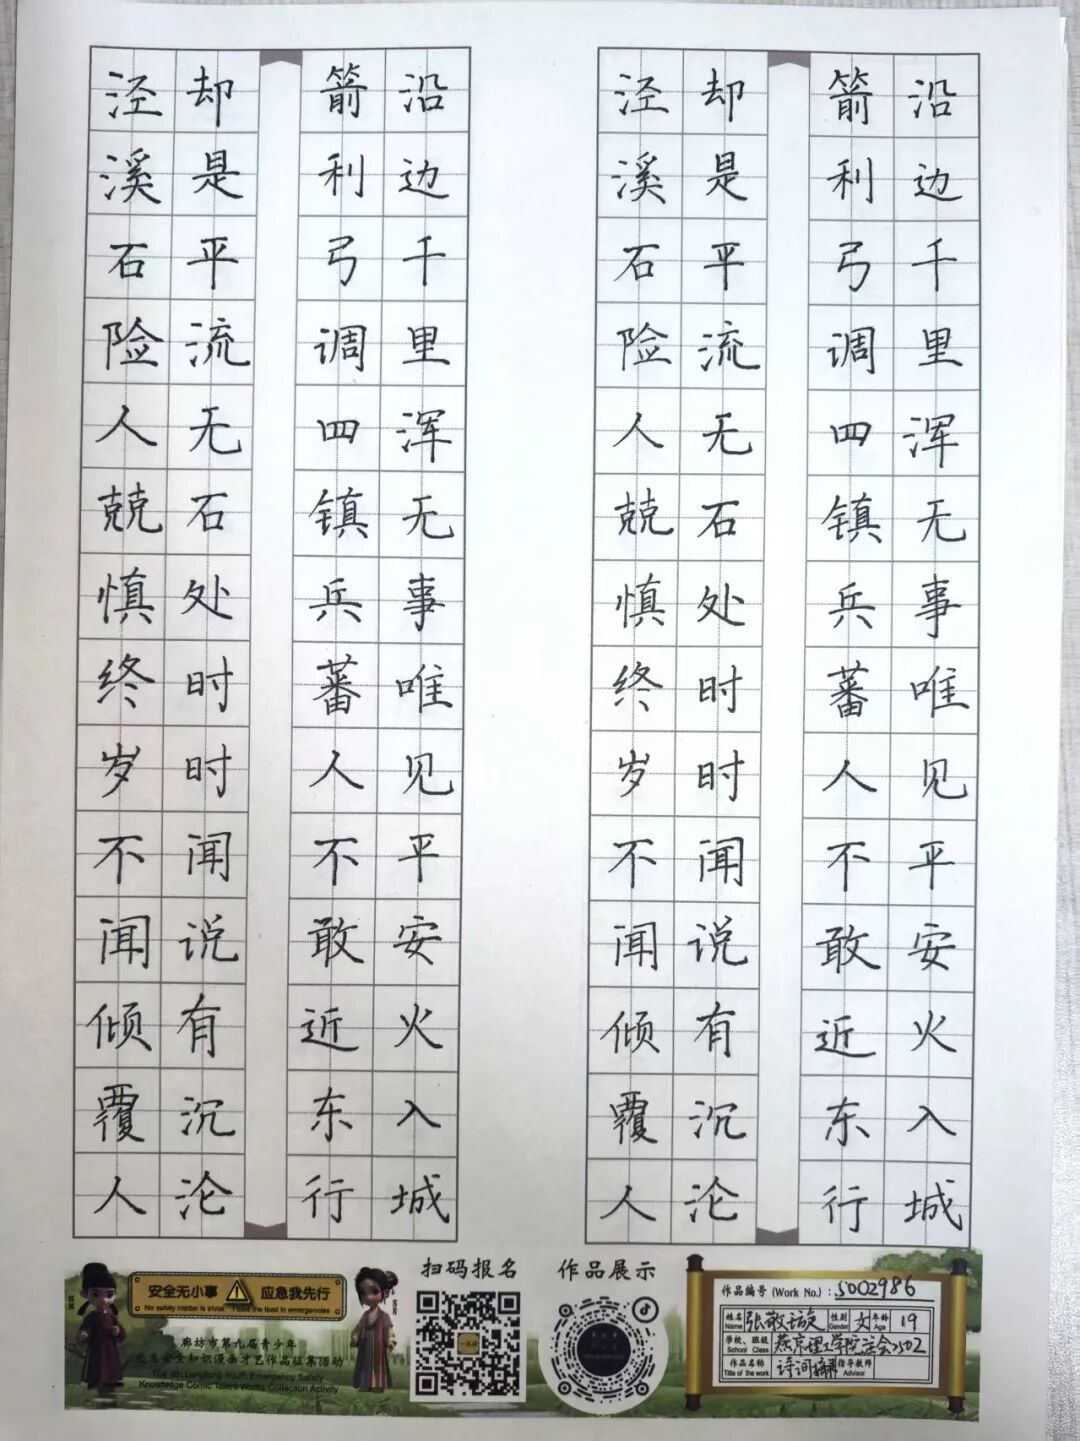 泾溪石险人兢慎终岁不闻倾覆人
却是平流无石处时时闻说有沉沦
箭利弓调四镇兵蕃人不敢近东行
沿边千里浑无事唯见平安火入城
泾溪石险人兢慎终岁不闻倾覆人
却是平流无石处时时闻说有沉沦
箭利弓调四镇兵蕃人不敢近东行
沿边千里浑无事唯见平安火入城
安全无小事 应急我先行
No safety matter is trivial Take the lead in emergencies
廊坊市第九届青少年
应急安全知识漫画才艺作品征集活动
The 9th Langfang Youth Emergency Safety
Knowledge Comic Talent Works Collection Activity
扫码报名
作品展示
作品编号 (Work No.): 5002986
姓名 Name 张敬 性别 Gender 女 年龄 Age 19
学校、班级 School Class 燕京理工学院 2502
作品名称 Title of the work 诗词 指导教师 Advisor